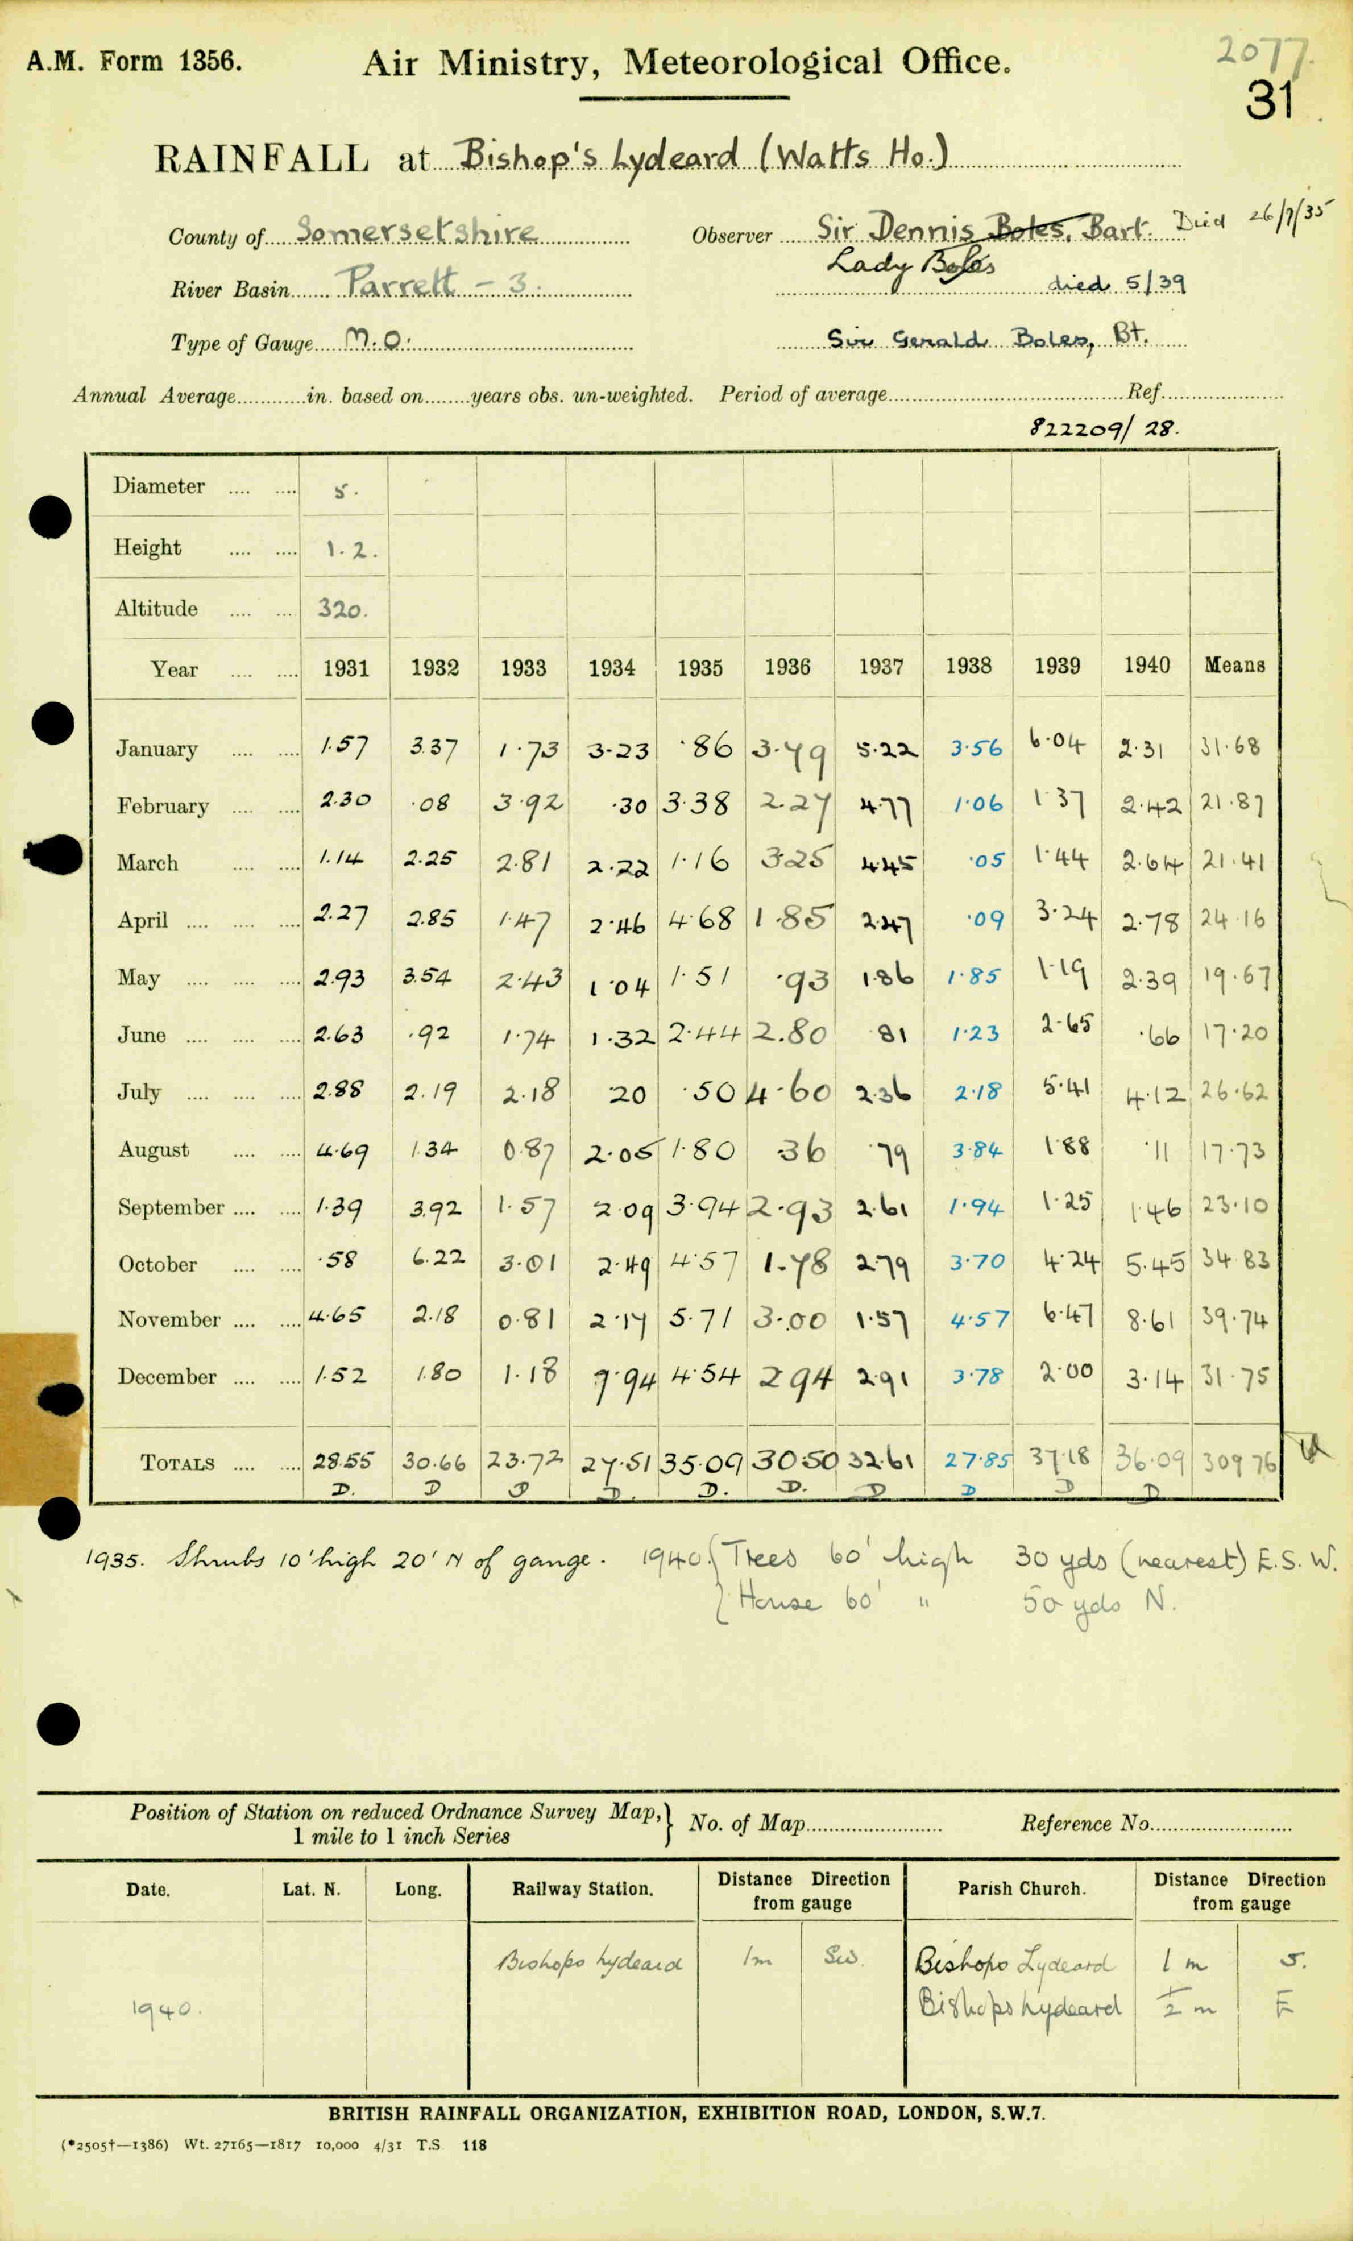 A.M. Form 1356. Air Ministry, Meteorological Office. 2077.
31
RAINFALL at Bishop's Lydeard (Watts Ho.)
County of Somersetshire Observer Sir Dennis Boles, Bart. Died 26/7/35
Lady Boles
River Basin Parrett - 3. died 5/39
Type of Gauge M.O. Sir Gerald Boles, Bt.
Annual Average............in. based on........years obs. un-weighted. Period of average............ Ref............
822209/28.
Diameter .... .... 5.
Height .... .... 1.2.
Altitude .... .... 320.
Year .... .... 1931 1932 1933 1934 1935 1936 1937 1938 1939 1940 Means
January .... .... 1.57 3.37 1.73 3.23 .86 3.79 5.22 3.56 6.04 2.31 31.68
February .... .... 2.30 .08 3.92 .30 3.38 2.27 4.77 1.06 1.37 2.42 21.87
March .... .... 1.14 2.25 2.81 2.22 1.16 3.25 4.45 .05 1.44 2.64 21.41
April .... .... .... 2.27 2.85 1.47 2.46 4.68 1.85 2.47 .09 3.24 2.78 24.16
May .... .... .... 2.93 3.54 2.43 1.04 1.51 .93 1.86 1.85 1.19 2.39 19.67
June .... .... .... 2.63 .92 1.74 1.32 2.44 2.80 .81 1.23 2.65 .66 17.20
July .... .... .... 2.88 2.19 2.18 .20 .50 4.60 2.36 2.18 5.41 4.12 26.62
August .... .... 4.69 1.34 0.87 2.05 1.80 .36 .79 3.84 1.88 .11 17.73
September .... .... 1.39 3.92 1.57 2.09 3.94 2.93 2.61 1.94 1.25 1.46 23.10
October .... .... .58 6.22 3.01 2.49 4.57 1.78 2.79 3.70 4.24 5.45 34.83
November .... .... 4.65 2.18 0.81 2.17 5.71 3.00 1.57 4.57 6.47 8.61 39.74
December .... .... 1.52 1.80 1.18 7.94 4.54 2.94 2.91 3.78 2.00 3.14 31.75
TOTALS .... .... 28.55 30.66 23.72 27.51 35.09 30.50 32.61 27.85 37.18 36.09 309.76
D. D D D. D. D. D D D D
1935. Shrubs 10' high 20' N of gauge. 1940. { Trees 60' high 30 yds (nearest) E.S.W.
House 60' " 50 yds N.
Position of Station on reduced Ordnance Survey Map, } No. of Map............ Reference No............
1 mile to 1 inch Series
Date. Lat. N. Long. Railway Station. Distance Direction from gauge Parish Church. Distance Direction from gauge
Bishops Lydeard 1m SW. Bishops Lydeard 1 m S.
1940. Bishops Lydeard 1/2 m E
BRITISH RAINFALL ORGANIZATION, EXHIBITION ROAD, LONDON, S.W.7.
(*2505†—1386) Wt. 27165—1817 10,000 4/31 T.S. 118